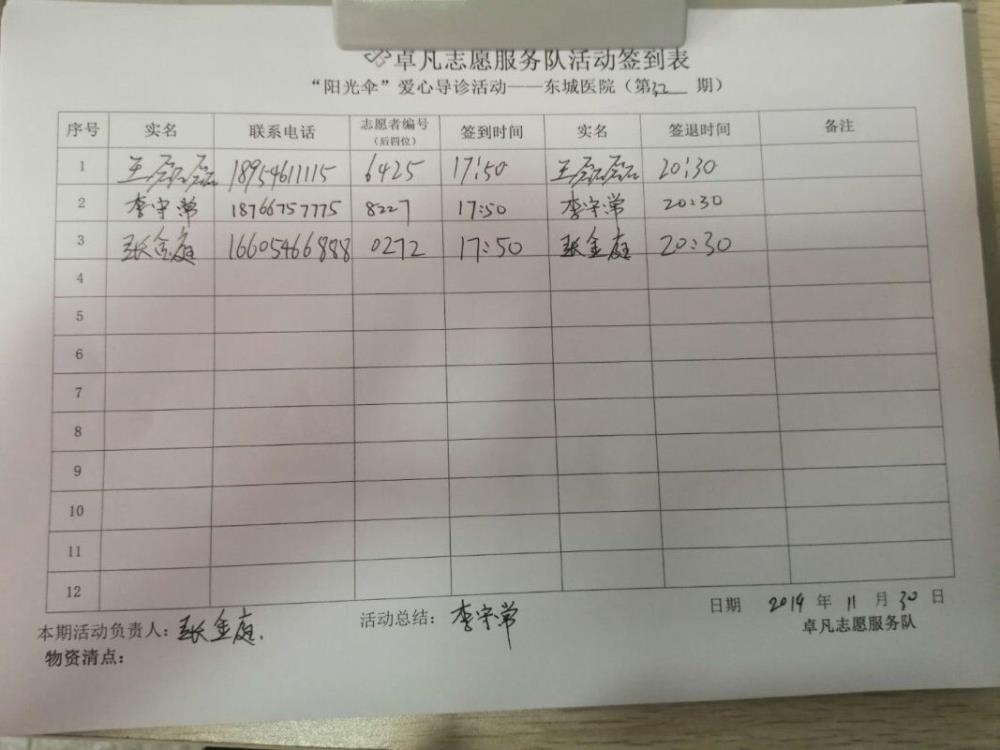 卓凡志愿服务队活动签到表
“阳光伞”爱心导诊活动——东城医院（第32 期）
序号 实名 联系电话 志愿者编号（后四位） 签到时间 实名 签退时间 备注
1 王磊磊 18954611115 6425 17:50 王磊磊 20:30
2 李守常 18766757775 8227 17:50 李守常 20:30
3 张金庭 16605466888 0272 17:50 张金庭 20:30
4
5
6
7
8
9
10
11
12
日期 2019 年 11 月 30 日
本期活动负责人：张金庭. 活动总结：李守常
卓凡志愿服务队
物资清点：